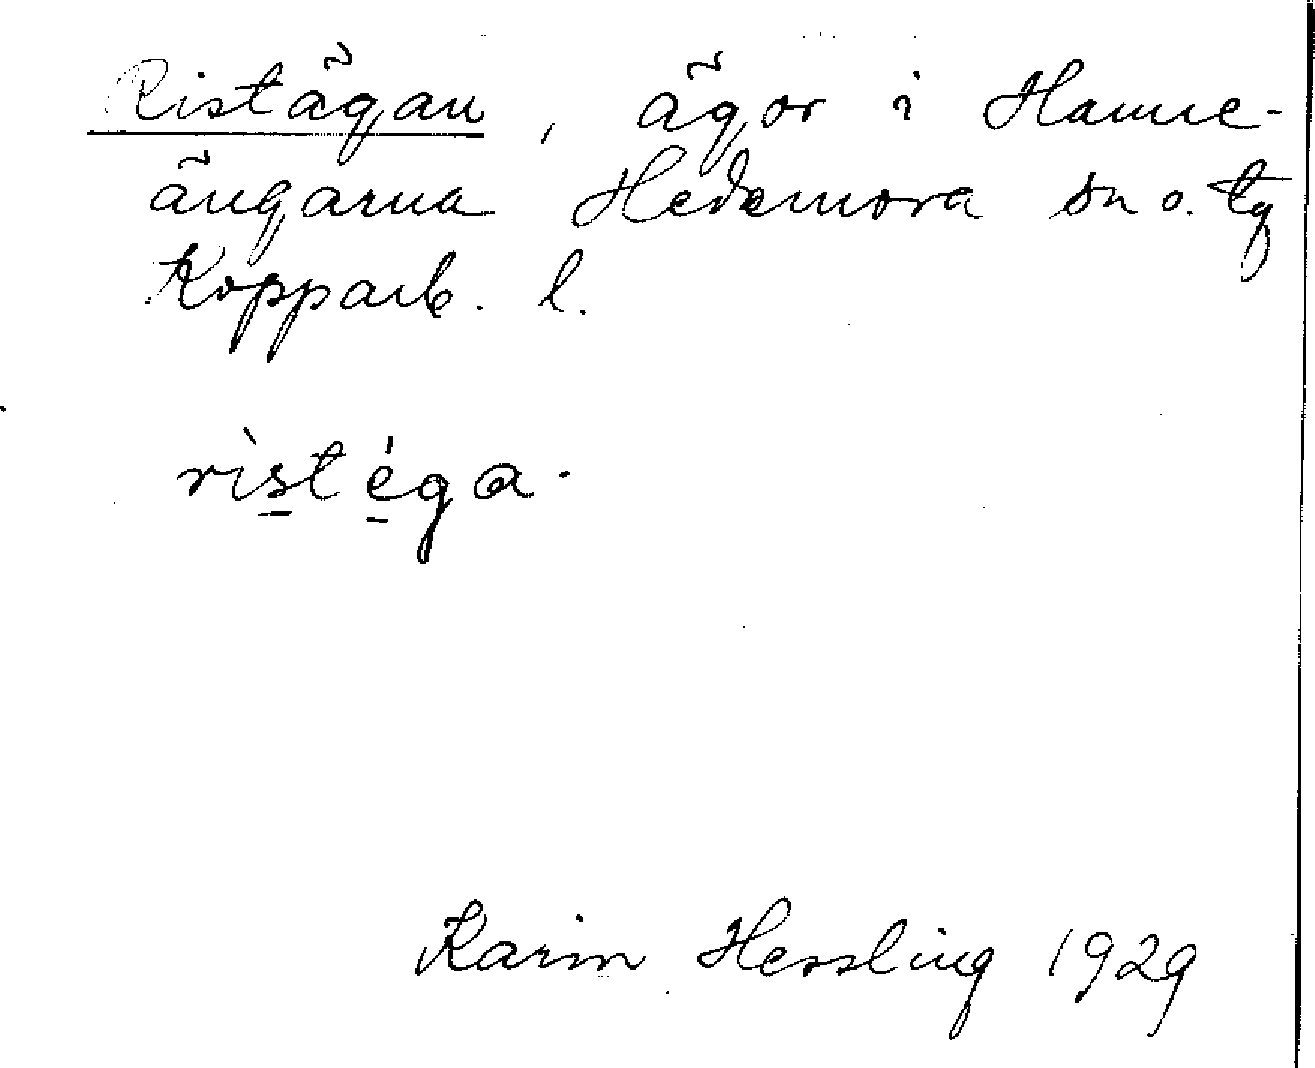 Ristägan, ägor i Hamre-
ängarna Hedemora sn o. tg
Kopparb. l.
rìstéga.
Karin Hessling 1929